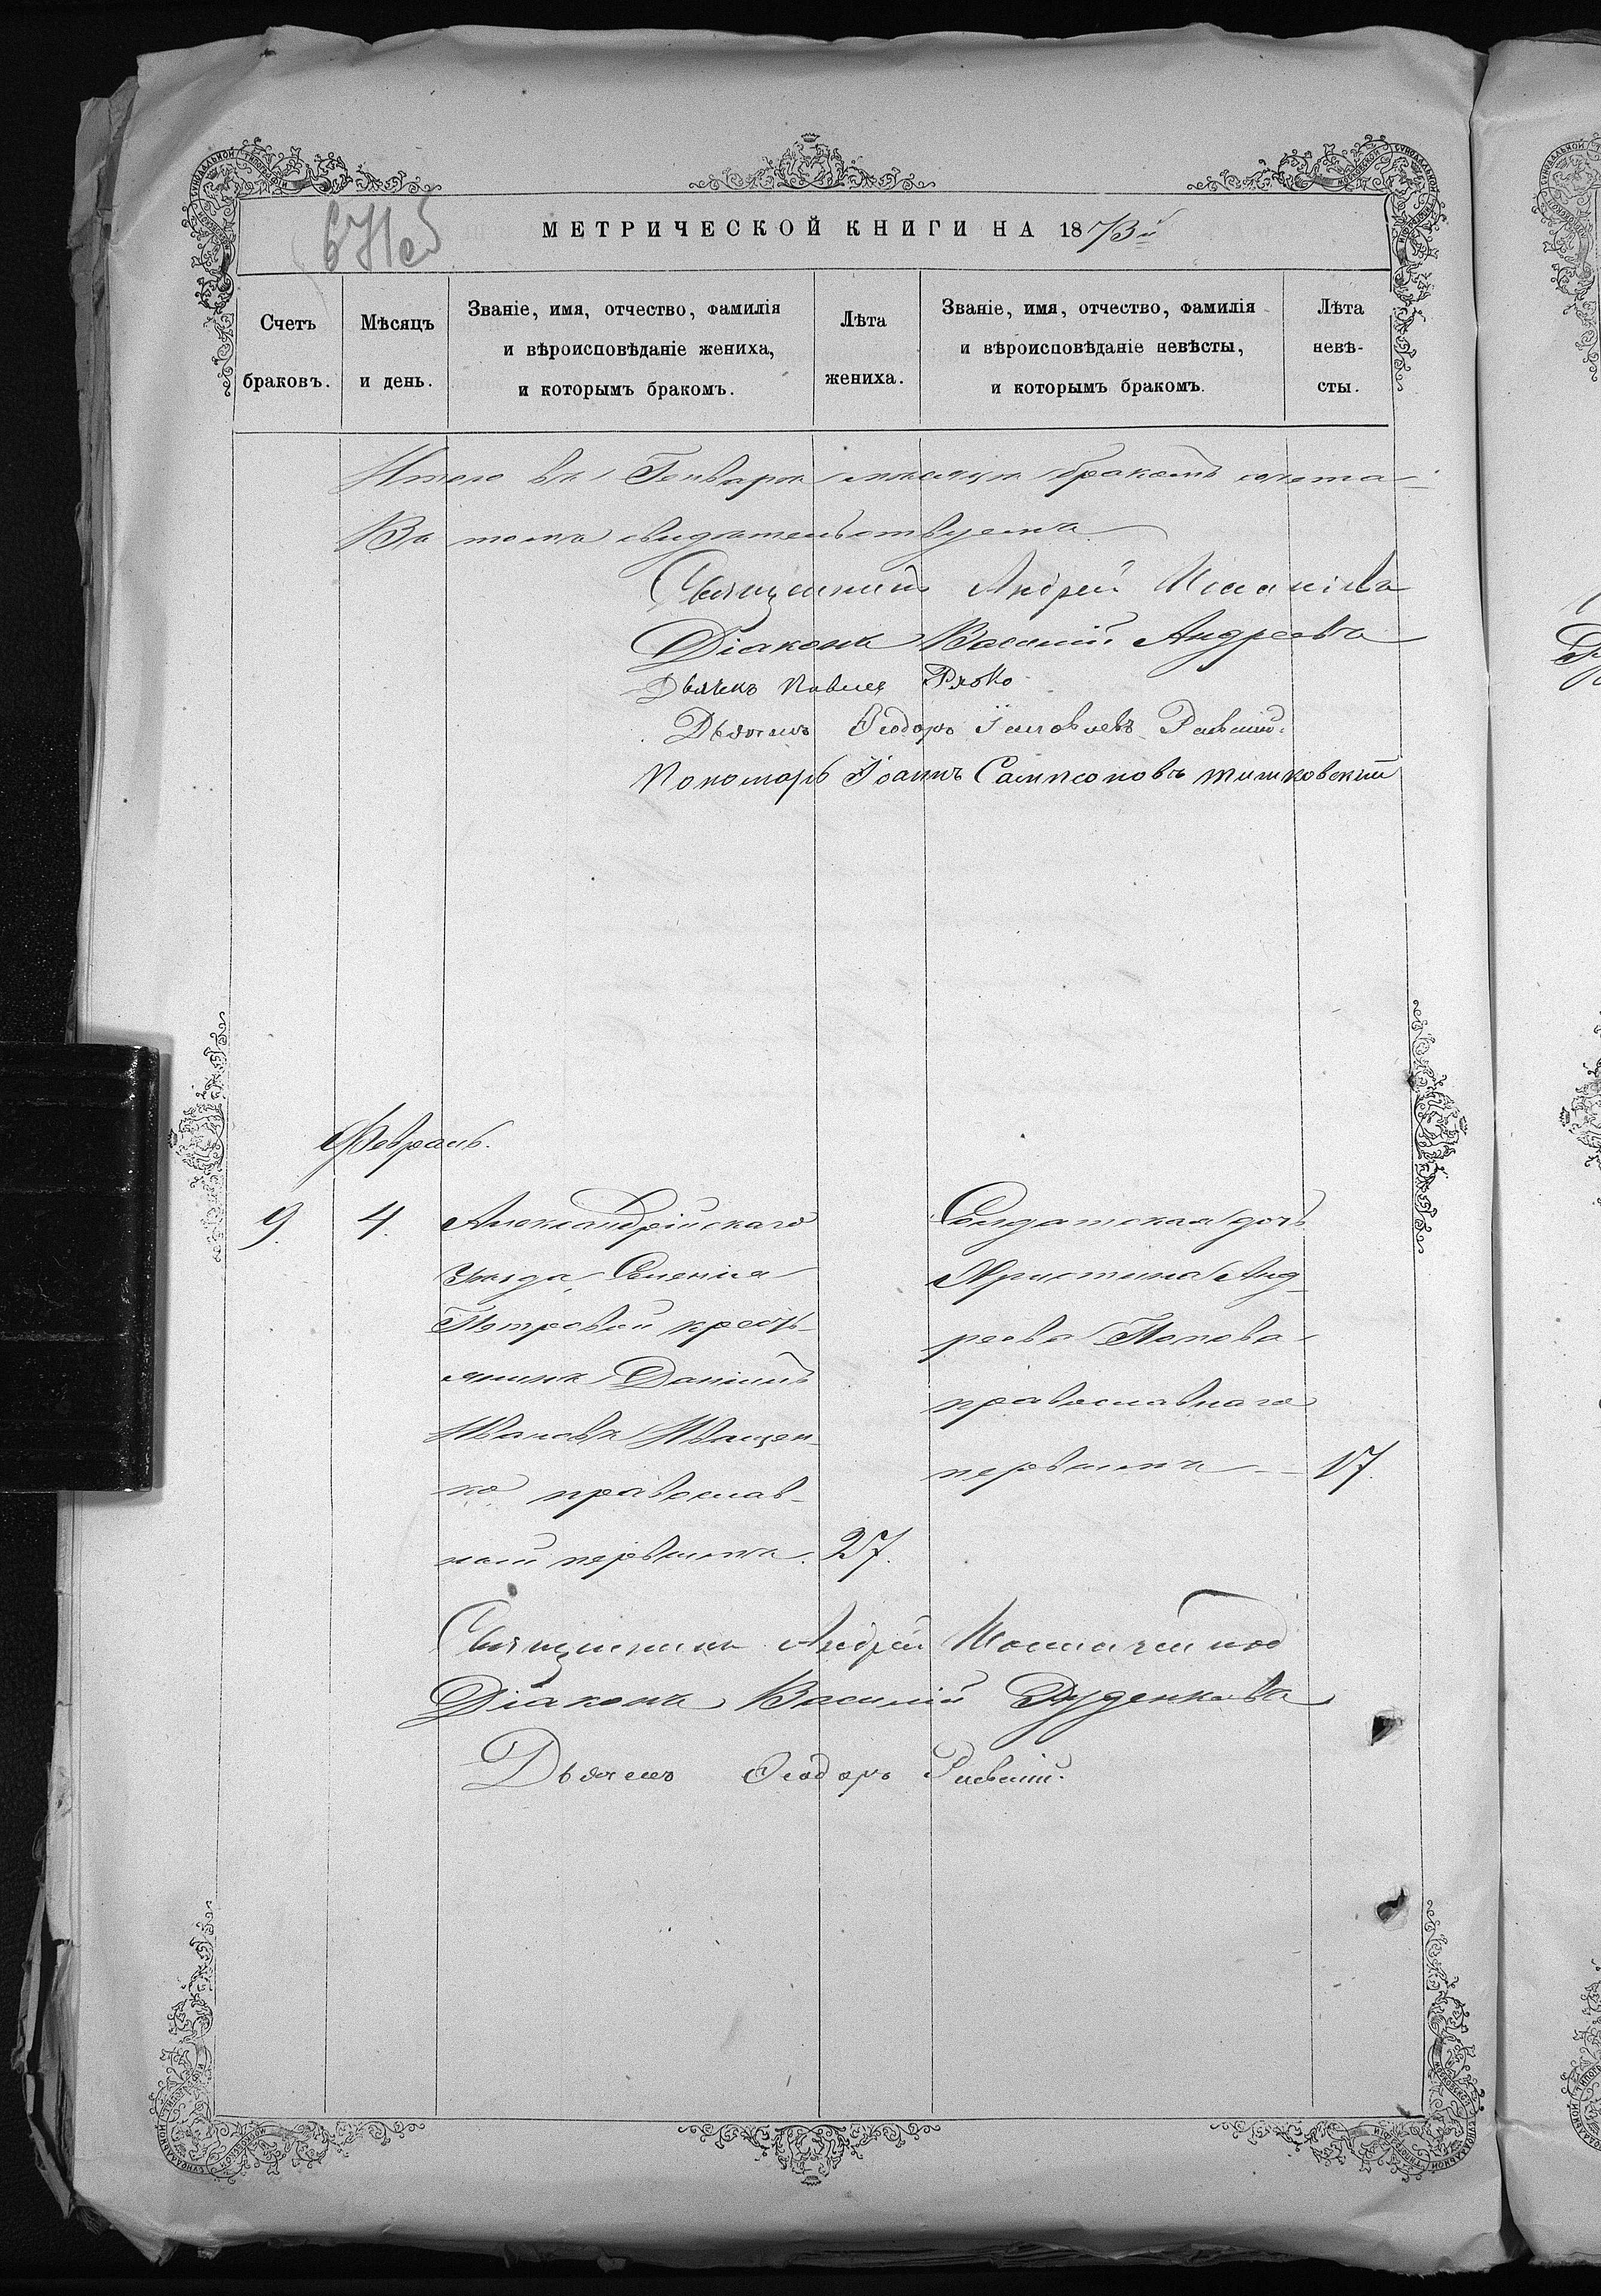 671об
МЕТРИЧЕСКОЙ КНИГИ НА 1873й
Счетъ браковъ.
Мѣсяцъ и день.
Званіе, имя, отчество, фамилія
и вѣроисповѣданіе жениха,
и которымъ бракомъ.
Лѣта жениха.
Званіе, имя, отчество, фамилія
и вѣроисповѣданіе невѣсты,
и которымъ бракомъ.
Лѣта невѣ-
сты.
Итого въ Генварѣ мѣсяцѣ бракомъ сочета-
Въ томъ свидѣтельствуемъ
Священникъ Андрей
Діаконъ Василій Андреевъ
Дьячекъ Павелъ
Дьячекъ Ѳеодоръ
Пономарь Іоаннъ Сампсоновъ
Февраль.
9. 4.
Александрійскаго
уѣзда, Селенія
Петровки крестъ-
янинъ Даніилъ
Ивановъ Иващен-
ко православ-
ный первымъ. 27.
Солдатская дочь
Христина Анд-
реева Попова
православнаго
первымъ — 17
Священникъ Андрей
Діаконъ Василій Руденковъ
Дьячекъ Ѳеодоръ